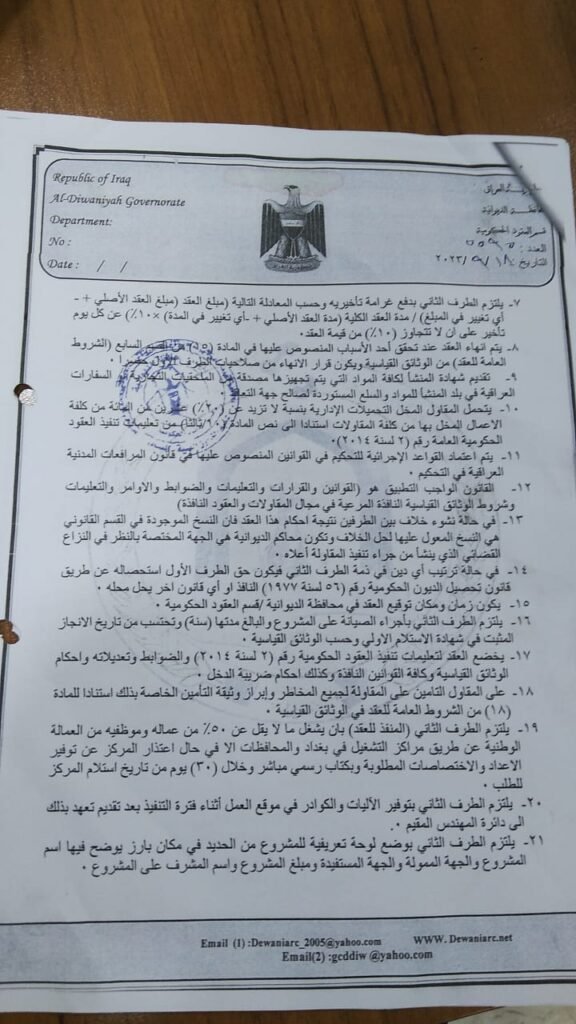 Republic of Iraq
Al-Diwaniyah Governorate
Department:
No :
Date : / /
العدد :
التاريخ : ٢٠٢٣/
٧- يلتزم الطرف الثاني بدفع غرامة تأخيريه وحسب المعادلة التالية (مبلغ العقد (مبلغ العقد الأصلي + -
أي تغيير في المبلغ) / مدة العقد الكلية (مدة العقد الأصلي + -أي تغيير في المدة) ×١٠٪) عن كل يوم
تأخير على ان لا تتجاوز (١٠٪) من قيمة العقد.
٨- يتم انهاء العقد عند تحقق أحد الأسباب المنصوص عليها في المادة (١٥) من القسم السابع (الشروط
العامة للعقد) من الوثائق القياسية ويكون قرار الانهاء من صلاحيات الطرف الأول
٩- تقديم شهادة المنشأ لكافة المواد التي يتم تجهيزها مصدقة من الملحقيات التجارية السفارات
العراقية في بلد المنشأ للمواد والسلع المستوردة لصالح جهة
١٠- يتحمل المقاول المخل التحميلات الإدارية بنسبة لا تزيد عن (٢٠٪) عشرين من المائة من كلفة
الاعمال المخل بها من كلفة المقاولات استنادا الى نص المادة (١٠/ثالثا) من تعليمات تنفيذ العقود
الحكومية العامة رقم (٢ لسنة ٢٠١٤).
١١- يتم اعتماد القواعد الإجرائية للتحكيم في القوانين المنصوص عليها في قانون المرافعات المدنية
العراقية في التحكيم .
١٢- القانون الواجب التطبيق هو (القوانين والقرارات والتعليمات والضوابط والاوامر والتعليمات
وشروط الوثائق القياسية النافذة المرعية في مجال المقاولات والعقود النافذة)
١٣- في حالة نشوء خلاف بين الطرفين نتيجة احكام هذا العقد فان النسخ الموجودة في القسم القانوني
هي النسخ المعول عليها لحل الخلاف وتكون محاكم الديوانية هي الجهة المختصة بالنظر في النزاع
القضائي الذي ينشأ من جراء تنفيذ المقاولة أعلاه .
١٤- في حالة ترتيب أي دين في ذمة الطرف الثاني فيكون حق الطرف الأول استحصاله عن طريق
قانون تحصيل الديون الحكومية رقم (٥٦ لسنة ١٩٧٧) النافذ او أي قانون اخر يحل محله .
١٥- يكون زمان ومكان توقيع العقد في محافظة الديوانية /قسم العقود الحكومية .
١٦- يلتزم الطرف الثاني بأجراء الصيانة على المشروع والبالغ مدتها (سنة) وتحتسب من تاريخ الانجاز
المثبت في شهادة الاستلام الاولي وحسب الوثائق القياسية .
١٧- يخضع العقد لتعليمات تنفيذ العقود الحكومية رقم (٢ لسنة ٢٠١٤) والضوابط وتعديلاته واحكام
الوثائق القياسية وكافة القوانين النافذة وكذلك احكام ضريبة الدخل .
١٨- على المقاول التامين على المقاولة لجميع المخاطر وإبراز وثيقة التأمين الخاصة بذلك استنادا للمادة
(١٨) من الشروط العامة للعقد في الوثائق القياسية .
١٩- يلتزم الطرف الثاني (المنفذ للعقد) بان يشغل ما لا يقل عن ٥٠٪ من عماله وموظفيه من العمالة
الوطنية عن طريق مراكز التشغيل في بغداد والمحافظات الا في حال اعتذار المركز عن توفير
الاعداد والاختصاصات المطلوبة وبكتاب رسمي مباشر وخلال (٣٠) يوم من تاريخ استلام المركز
للطلب .
٢٠- يلتزم الطرف الثاني بتوفير الأليات والكوادر في موقع العمل أثناء فترة التنفيذ بعد تقديم تعهد بذلك
الى دائرة المهندس المقيم .
٢١- يلتزم الطرف الثاني بوضع لوحة تعريفية للمشروع من الحديد في مكان بارز يوضح فيها اسم
المشروع والجهة الممولة والجهة المستفيدة ومبلغ المشروع واسم المشرف على المشروع .
Email (1) :Dewaniarc_2005@yahoo.com WWW. Dewaniarc.net
Email(2) :gcddiw @yahoo.com